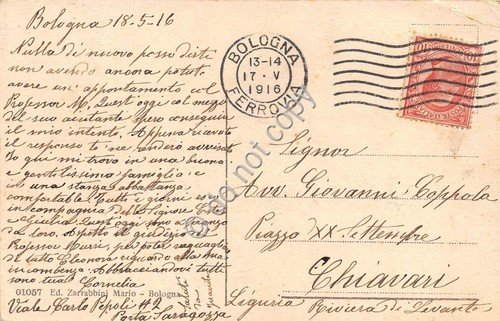 Bologna 18-5-16
Nulla di nuovo posso dirti
non avendo ancora potuto
avere un appuntamento col
Professor M. Quest'oggi col mezzo
del suo aiutante spero conseguire
il mio intento. Appena ricavato
il responso te ne renderò avvisato.
Io qui mi trovo in una buona
e gentilissima famiglia e
in una stanza abbastanza
comfortable. Tutti i giorni esco
in compagnia delle Signore
e Giulia
da loro. Aspetto il giudizio di
Professor Murri, per poter ragguagliar
di tutto Eleonora riguardo alla sua
incombenza. Abbracciandovi tutti
sono tua Cornelia
01057 Ed. Zarrabbini Mario - Bologna
Viale Carlo Pepoli #2
Porta Saragozza
BOLOGNA
13-14
17·V
1916
FERROVIA
Signor
Avv. Giovanni Coppola
Piazza XX Settembre
Chiavari
Liguria Riviera di Levante
do not copy